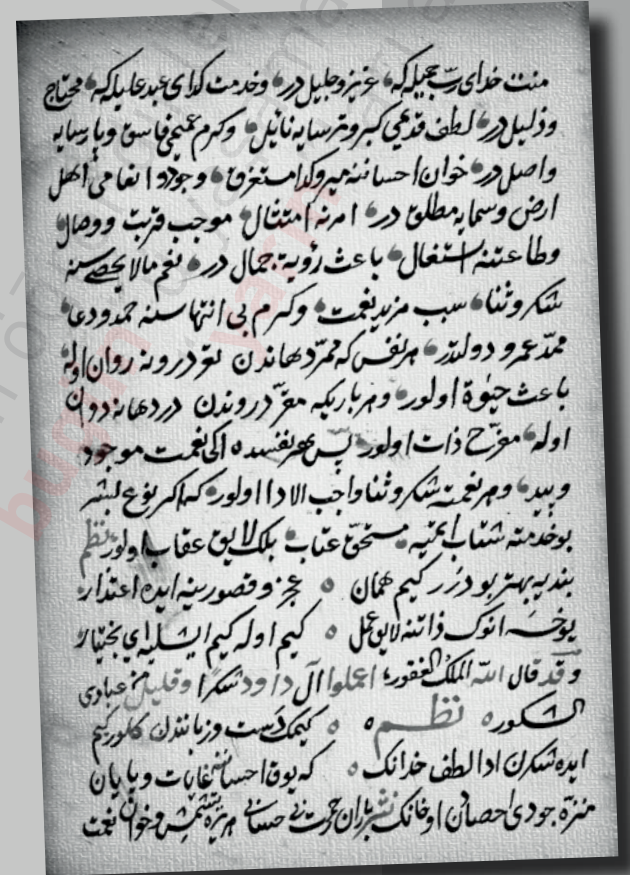 منت خدای رب جمیله که عزیز و جلیل در و خدمت کدای عبد علیله که محتاج
و ذلیل در لطف قدیمی کبر و ترسایه نائل و کرم عمیمی فاسق و پارسایه
واصل در خوان احساننه میر و کدا مستغرق و جود و انعامی اهل
ارض و سمایه مطلق در امرنه امتثال موجب قربت و وصال
و طاعتنه اشتغال باعث رؤیت جمال در نعم مالا یحصیسنه
شکر و ثنا سبب مزید نعمت و کرم بی انتهاسنه حمد و دعا
ممد عمر و دولتدر هر نفس که ممر دهاندن درونه روان اوله
باعث حیوة اولور و هر بار که مقر دروندن در دهانه دوان
اوله مفرح ذات اولور پس هر نفسده ایکی نعمت موجود
و هر نعمته شکر و ثنا واجب الادا اولور که اکر نوع بشر
بو خدمته شتاب ایتمیه مستحق عتاب بلکه لایق عقاب اولور نظم
بنده یه بهتر بودرر کیم همان عجز و قصورینه ایده اعتذار
یوخسه انوک ذاتنه لایق عمل کیم اوله کیم ایشلیه ای بختیار
و قد قال الله الملک الغفور اعملوا آل داود شکرا و قلیل من عبادی
الشکور نظم کیمک دست و زبانندن کلور کیم
ایده شکرن ادا لطف خدانک که یوق احساننه غایات و پایان
منزه جودی احصادن او خانک باران رحمت بی حسابی هر یره یتشمش و خوان نعمت